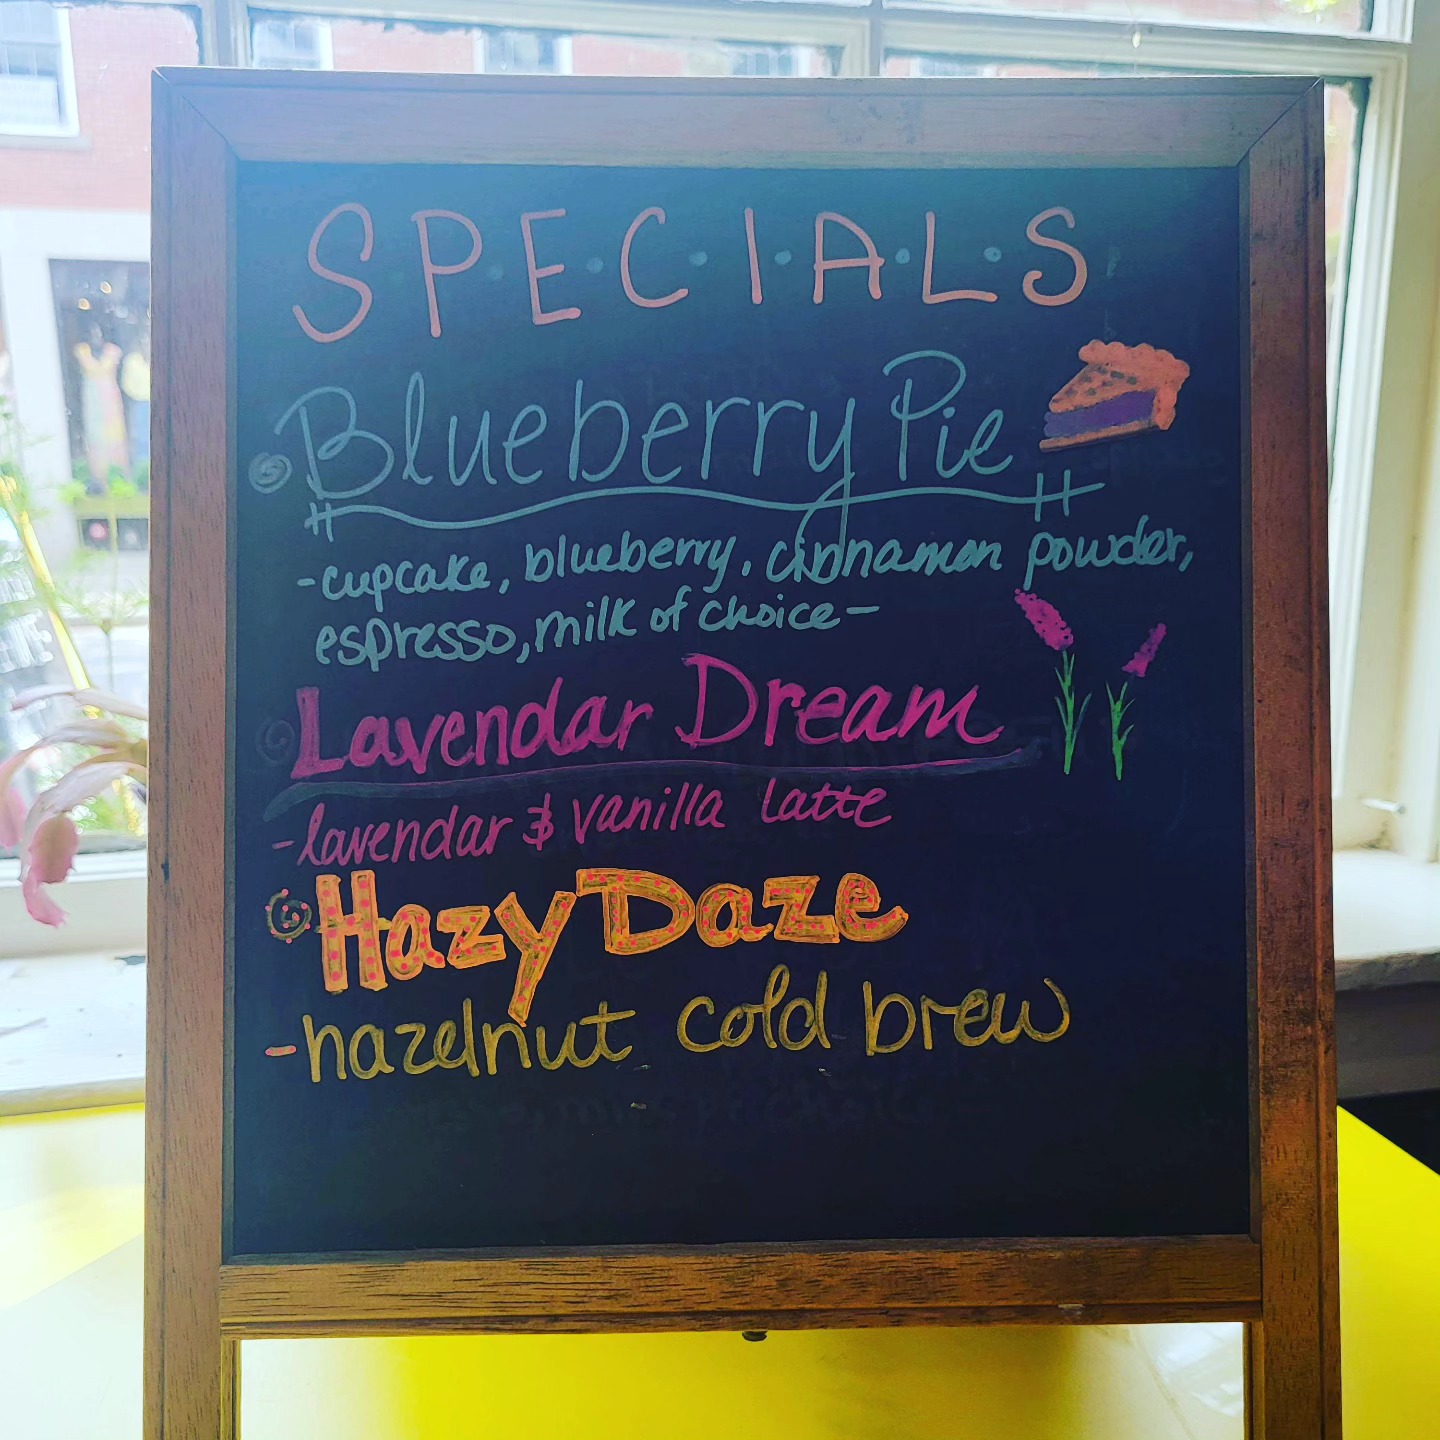 S P E C I A L S
Blueberry Pie
-cupcake, blueberry. cinnamon powder,
espresso, milk of choice-
Lavendar Dream
-lavendar & vanilla latte
Hazy Daze
-hazelnut cold brew